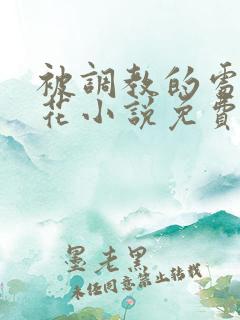 被調教的雪
花小說免費
墨老黑
未经同意禁止转载